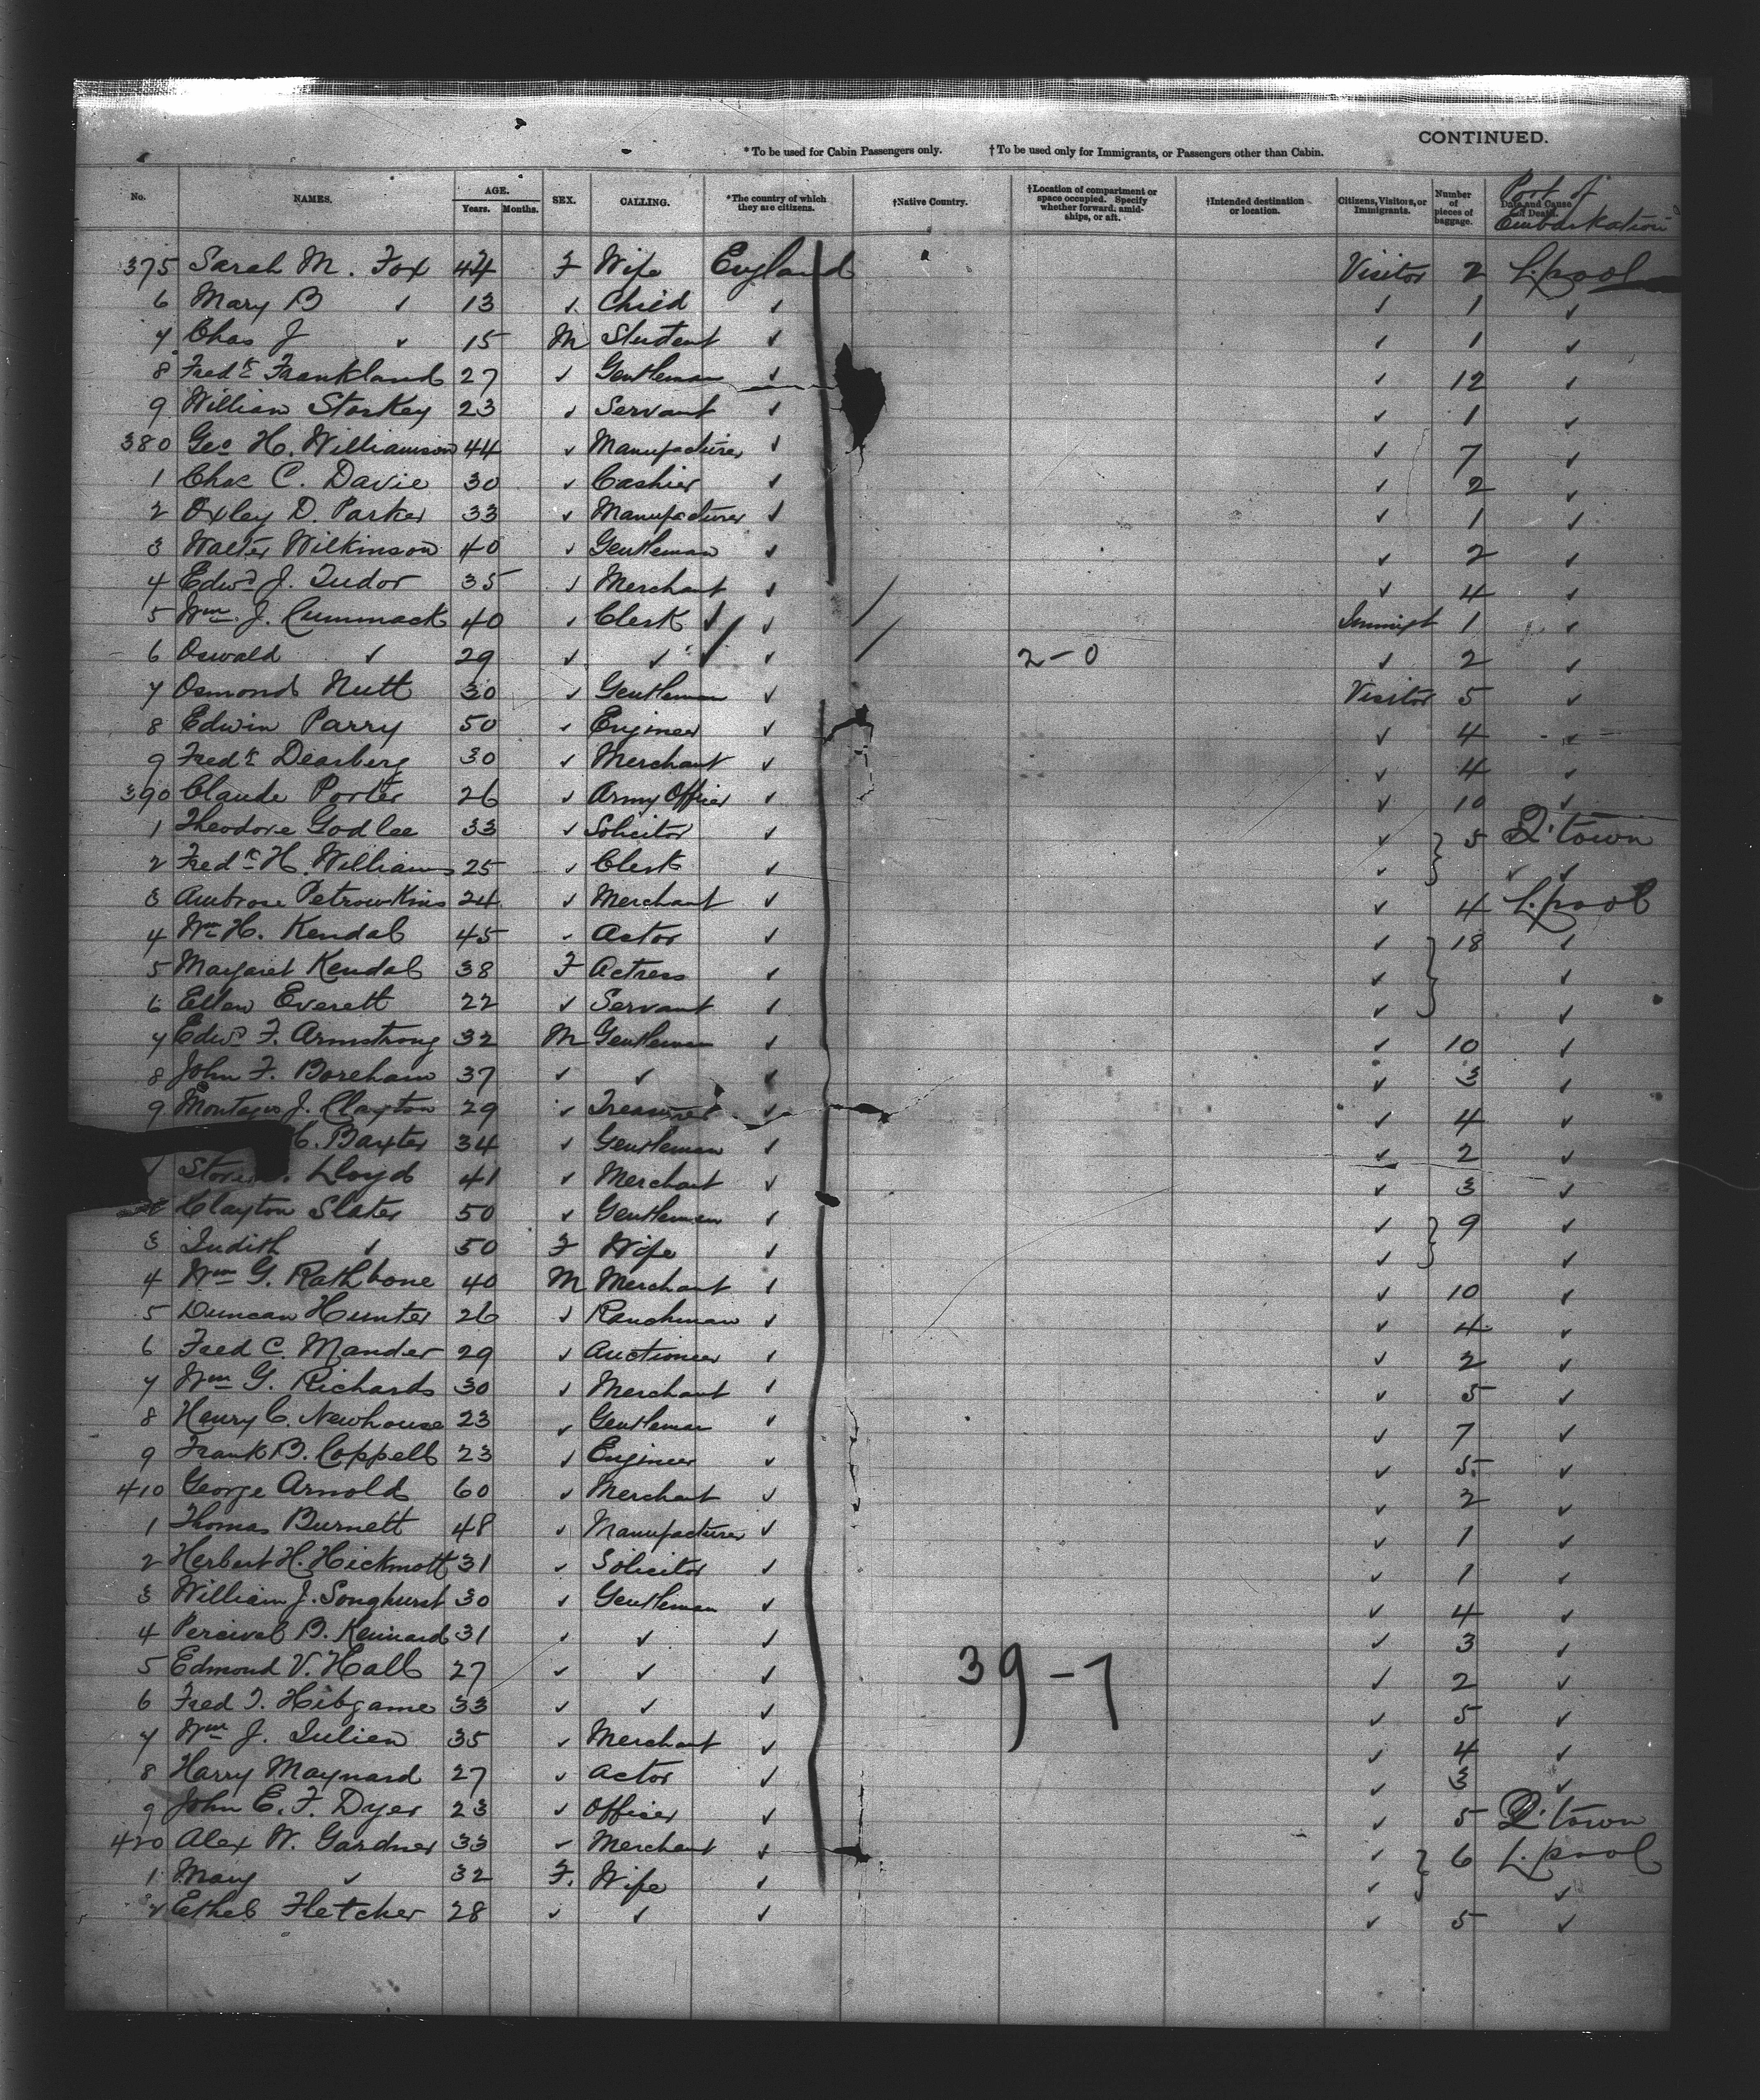 CONTINUED.
* To be used for Cabin Passengers only. † To be used only for Immigrants, or Passengers other than Cabin.
No. NAMES. AGE. Years. Months. SEX. CALLING. *The country of which they are citizens. †Native Country. †Location of compartment or space occupied. Specify whether forward, amidships, or aft. †Intended destination or location. Citizens, Visitors, or Immigrants. Number of pieces of baggage. Date and Cause of Death. Port of Embarkation
375 Sarah M. Fox 44 F Wife England Visitor 2 L.pool
6 Mary B ✓ 13 ✓ Child ✓ ✓ 1 ✓
7 Chas J ✓ 15 M Student ✓ ✓ 1 ✓
8 Fredk Frankland 27 ✓ Gentleman ✓ ✓ 12 ✓
9 William Storkey 23 ✓ Servant ✓ ✓ 1 ✓
380 Geo H. Williamson 44 ✓ Manufacturer ✓ ✓ 7 ✓
1 Chas C. Davie 30 ✓ Cashier ✓ ✓ 2 ✓
2 Oxley D. Parker 33 ✓ Manufacturer ✓ ✓ 1 ✓
3 Walter Wilkinson 40 ✓ Gentleman ✓ ✓ 2 ✓
4 Edwd J. Tudor 35 ✓ Merchant ✓ ✓ 4 ✓
5 Wm. J. Cummack 40 ✓ Clerk ✓ ✓ / Immigt 1 ✓
6 Oswald ✓ 29 ✓ ✓ ✓ / 2-0 ✓ 2 ✓
7 Osmond Nutt 30 ✓ Gentleman ✓ Visitor 5 ✓
8 Edwin Parry 50 ✓ Engineer ✓ ✓ 4 ✓
9 Fredk Dearberg 30 ✓ Merchant ✓ ✓ 4 ✓
390 Claude Porter 26 ✓ Army Officer ✓ ✓ 10 ✓
1 Theodore Godlee 33 ✓ Solicitor ✓ ✓ } 5 Q'town
2 Fredk H. Williams 25 ✓ Clerk ✓ ✓ ✓ ✓
3 Ambrose Petrowkins 24 ✓ Merchant ✓ ✓ 4 L.pool
4 Wm H. Kendal 45 ✓ Actor ✓ ✓ } 18 ✓
5 Margaret Kendal 38 F Actress ✓ ✓ ✓
6 Ellen Everett 22 ✓ Servant ✓ ✓ ✓
7 Edwd F. Armstrong 32 M Gentleman ✓ ✓ 10 ✓
8 John F. Boreham 37 ✓ ✓ ✓ ✓ 3 ✓
9 Montague J. Clayton 29 ✓ Treasurer ✓ ✓ 4 ✓
C. Baxter 34 ✓ Gentleman ✓ ✓ 2 ✓
1 Lloyd 41 ✓ Merchant ✓ ✓ 3 ✓
Clayton Slater 50 ✓ Gentleman ✓ ✓ } 9 ✓
3 Judith ✓ 50 F Wife ✓ ✓ ✓
4 Wm G. Rathbone 40 M Merchant ✓ ✓ 10 ✓
5 Duncan Hunter 26 ✓ Ranchman ✓ ✓ 4 ✓
6 Fred C. Mander 29 ✓ Auctioneer ✓ ✓ 2 ✓
7 Wm G. Richards 30 ✓ Merchant ✓ ✓ 5 ✓
8 Henry C. Newhouse 23 ✓ Gentleman ✓ ✓ 7 ✓
9 Frank B. Coppell 23 ✓ Engineer ✓ ✓ 5 ✓
410 George Arnold 60 ✓ Merchant ✓ ✓ 2 ✓
1 Thomas Burnett 48 ✓ Manufacturer ✓ ✓ 1 ✓
2 Herbert H. Hickmott 31 ✓ Solicitor ✓ ✓ 1 ✓
3 William J. Songhurst 30 ✓ Gentleman ✓ ✓ 4 ✓
4 Percival B. Kennard 31 ✓ ✓ ✓ ✓ 3 ✓
5 Edmond V. Hall 27 ✓ ✓ ✓ 39-1 ✓ 2 ✓
6 Fred T. Hibgame 33 ✓ ✓ ✓ ✓ 5 ✓
7 Wm J. Julien 35 ✓ Merchant ✓ ✓ 4 ✓
8 Harry Maynard 27 ✓ Actor ✓ ✓ 3 ✓
9 John E. F. Dyer 23 ✓ Officer ✓ ✓ 5 Q'town
420 Alex W. Gardner 33 ✓ Merchant ✓ ✓ } 6 L.pool
1 Mary ✓ 32 F. Wife ✓ ✓ ✓
2 Ethel Fletcher 28 ✓ ✓ ✓ ✓ 5 ✓